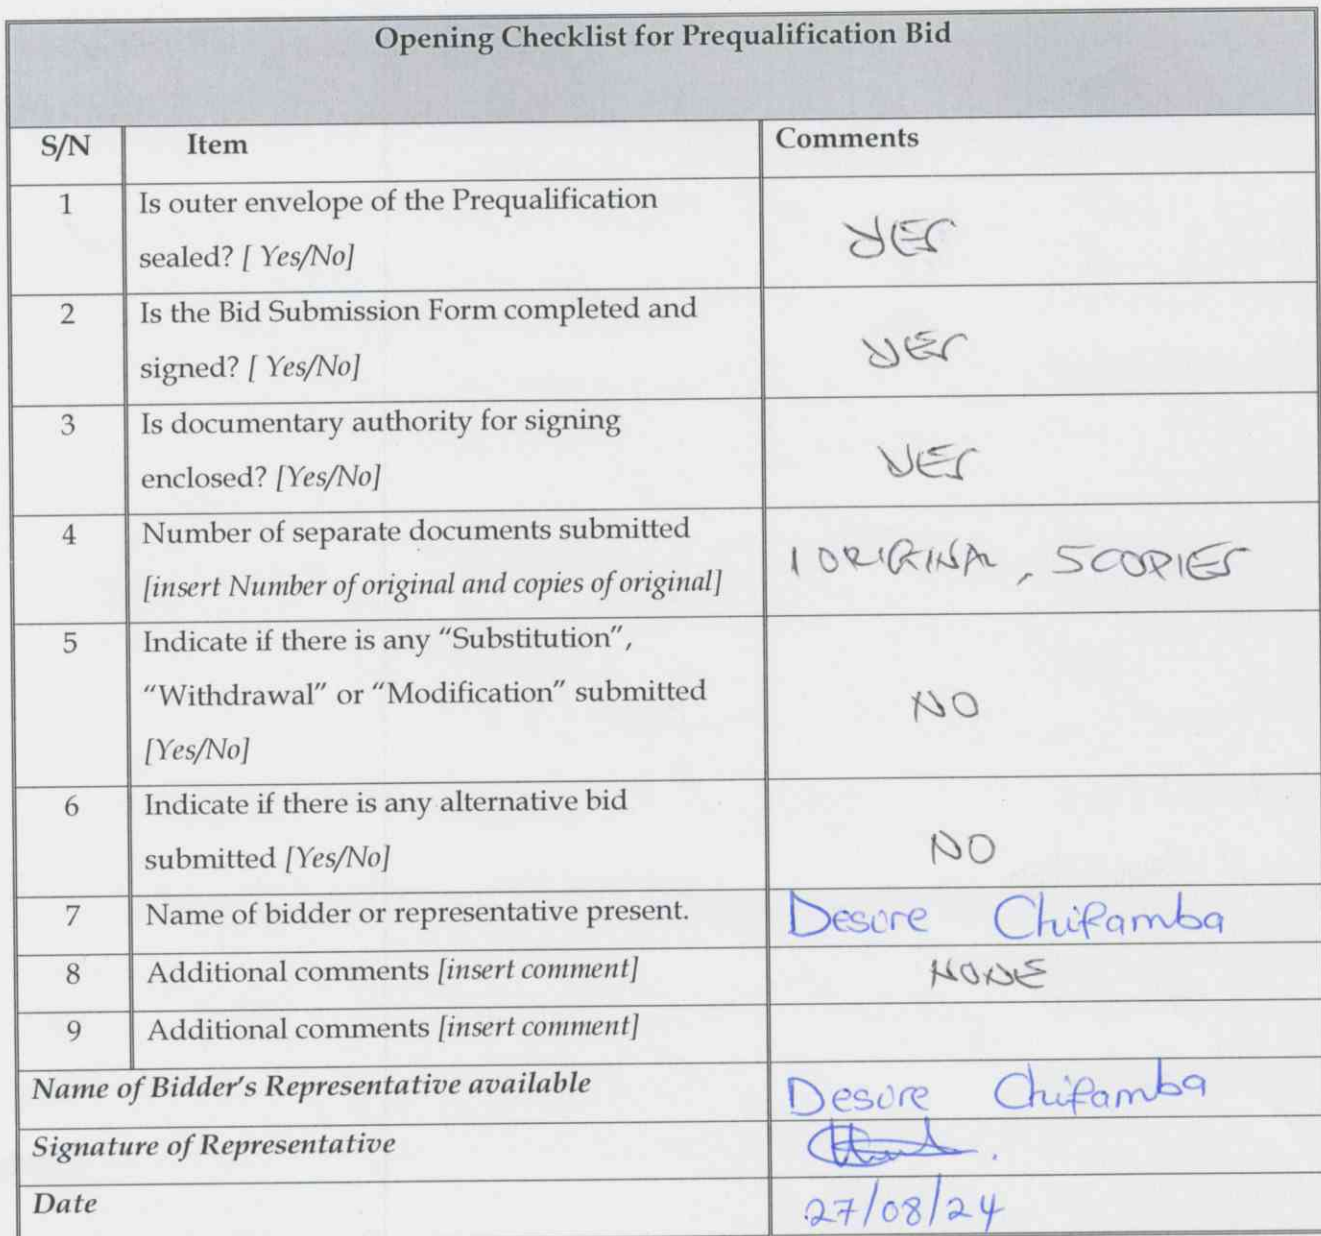 Opening Checklist for Prequalification Bid
S/N Item Comments
1 Is outer envelope of the Prequalification
sealed? [ Yes/No] YES
2 Is the Bid Submission Form completed and
signed? [ Yes/No] YES
3 Is documentary authority for signing
enclosed? [Yes/No] YES
4 Number of separate documents submitted
[insert Number of original and copies of original] 1 ORIGINAL, 5 COPIES
5 Indicate if there is any “Substitution”,
“Withdrawal” or “Modification” submitted
[Yes/No] NO
6 Indicate if there is any alternative bid
submitted [Yes/No] NO
7 Name of bidder or representative present. Desire Chifamba
8 Additional comments [insert comment] NONE
9 Additional comments [insert comment]
Name of Bidder's Representative available Desire Chifamba
Signature of Representative
Date 27/08/24